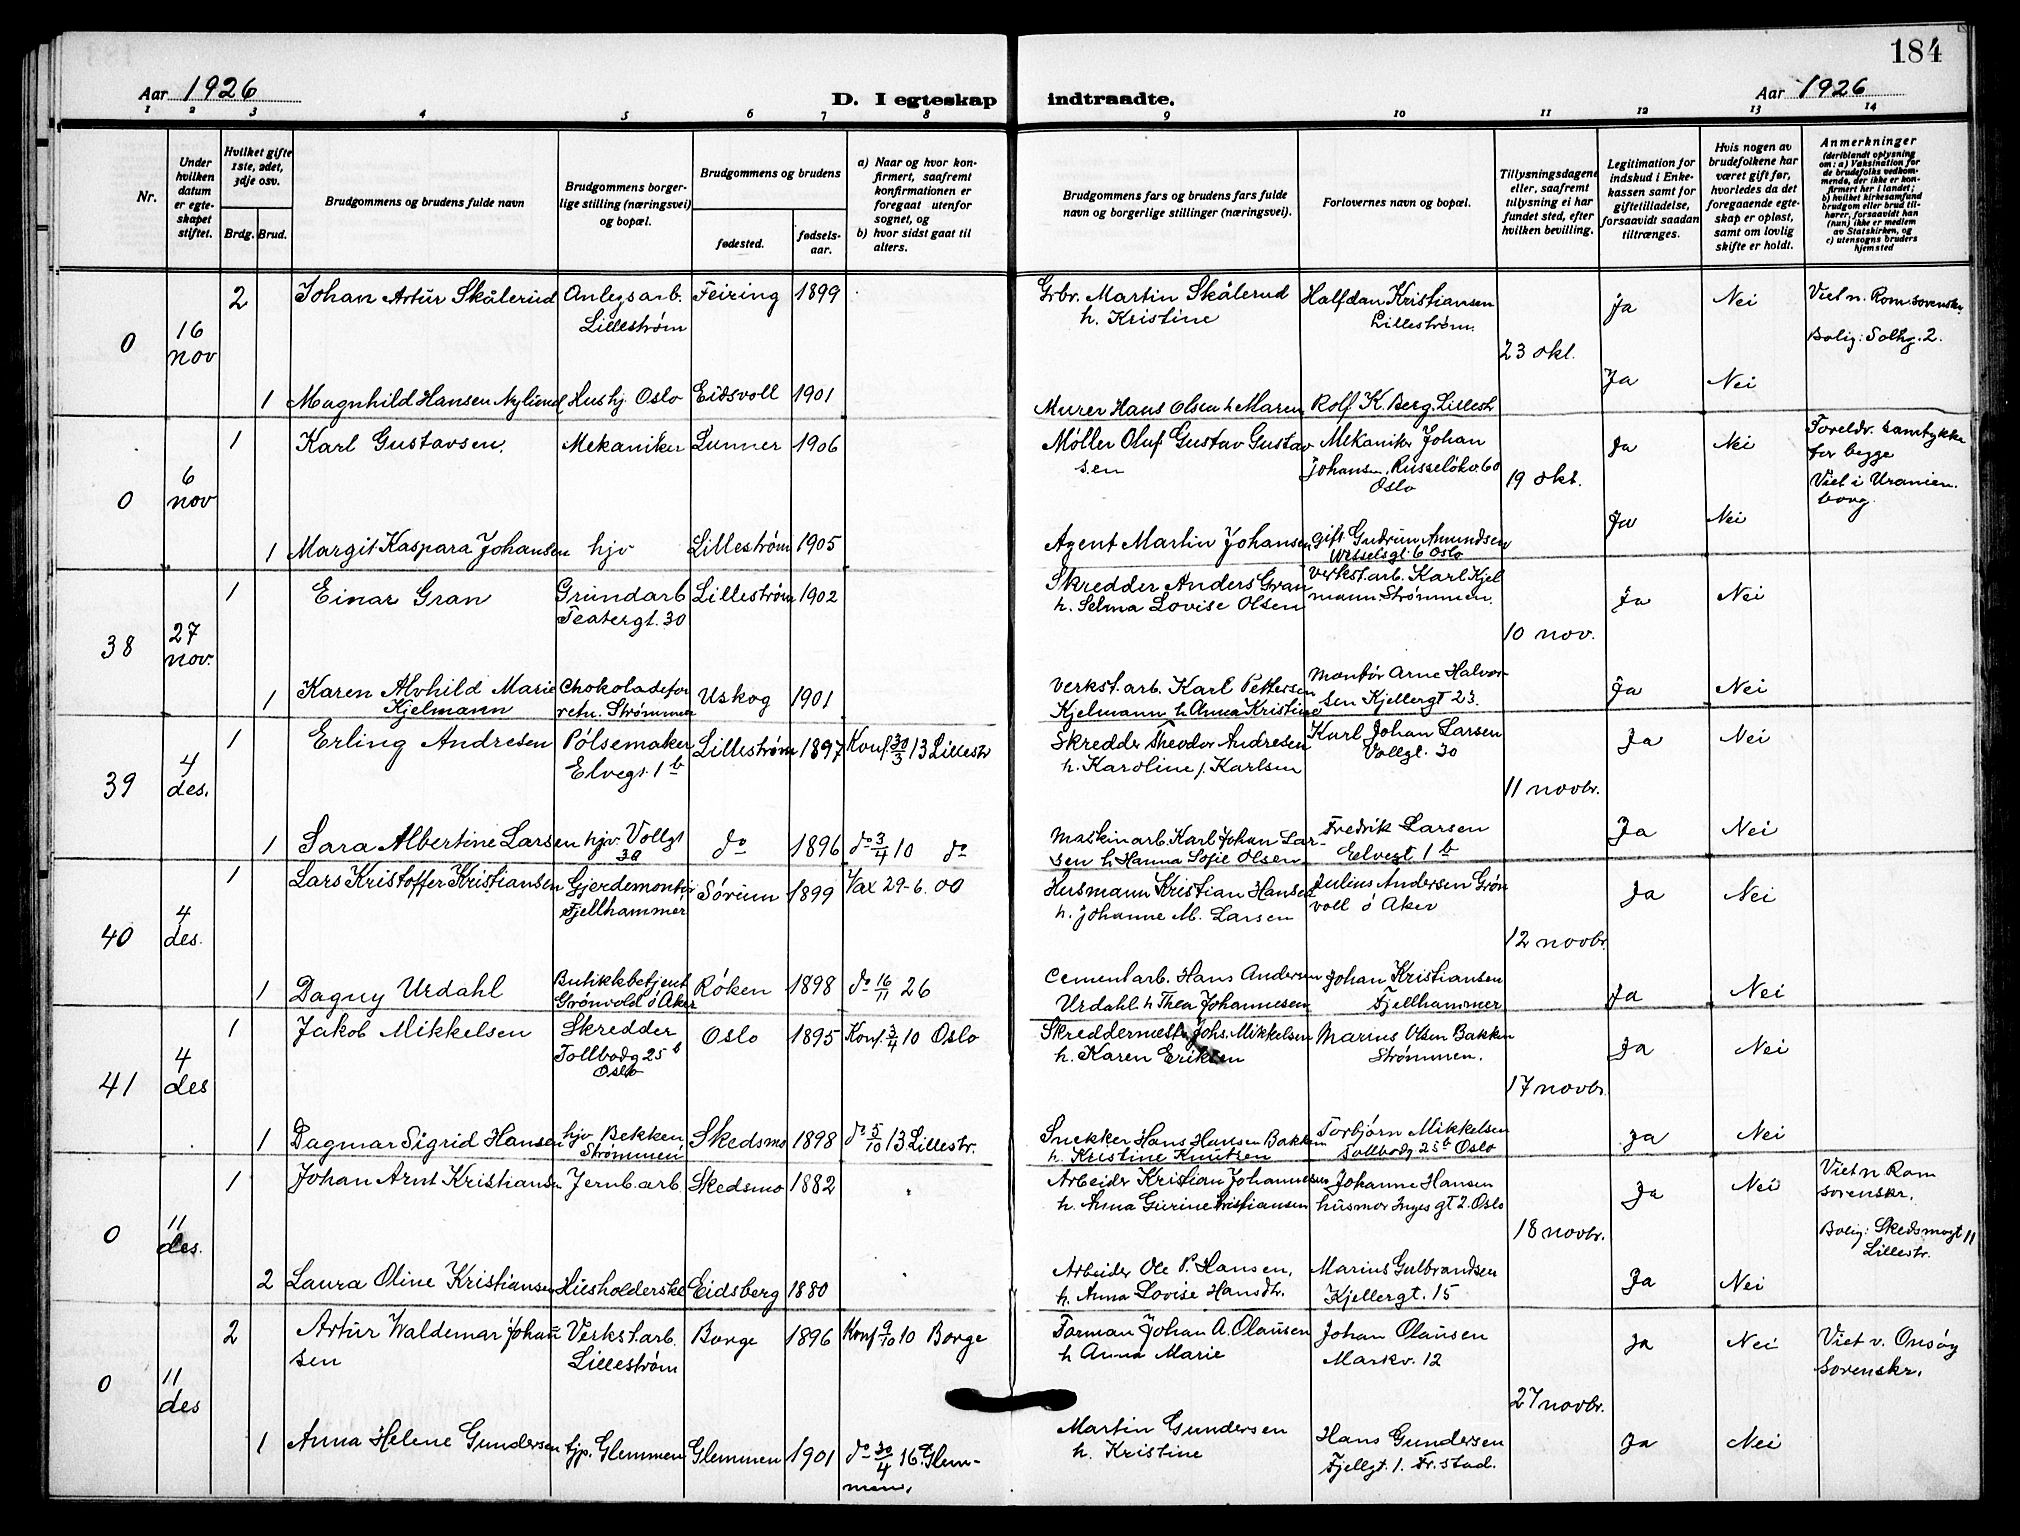 184
Aar 1926
D. I egteskap
indtraadte.
Aar 1926
1 2 3 4 5 6 7 8 9 10 11 12 13 14
Nr.
Under hvilken datum er egteskapet stiftet.
Hvilket gifte 1ste, 2det, 3dje osv.
Brdg. Brud.
Brudgommens og brudens fulde navn
Brudgommens borgerlige stilling (næringsvei) og bopæl.
Brudgommens og brudens
fødested.
fødselsaar.
a) Naar og hvor konfirmert, saafremt konfirmationen er foregaat utenfor sognet, og
b) hvor sidst gaat til alters.
Brudgommens fars og brudens fars fulde navn og borgerlige stillinger (næringsvei).
Forlovernes navn og bopæl.
Tillysningsdagene eller, saafremt tillysning ei har fundet sted, efter hvilken bevilling.
Legitimation for indskud i Enkekassen samt for giftetilladelse, forsaavidt saadan tiltrænges.
Hvis nogen av brudefolkene har været gift før, hvorledes da det foregaaende egteskap er opløst, samt om lovlig skifte er holdt.
Anmerkninger (deriblandt oplysning om: a) Vaksination for de brudefolks vedkommende, der ikke er konfirmert her i landet; b) hvilket kirkesamfund brudgom eller brud tilhører, forsaavidt han (hun) ikke er medlem av Statskirken, og c) utensogns bruders hjemsted
0 16 nov
2 Johan Artur Skålerud Anlegsarb. Lillestrøm Feiring 1899
Grbr. Martin Skålerud h. Kristine
Halfdan Kristiansen Lillestrøm.
23 okt.
Ja Nei
Viet n. Rom. sorenskr.
Bolig: Solhg. 2.
1 Magnhild Hansen Nylund Hushj. Oslo Eidsvoll 1901
Murer Hans Olsen h Maren
Rolf K. Berg. Lillestr
Ja Nei
0 6 nov
1 Karl Gustavsen. Mekaniker Lunner 1906
Møller Oluf Gustav Gustavsen
Mekanikr Johan Johansen, Russeløkv 60 Oslo
19 okt.
Ja Nei
Foreldr. samtykke for begge
Viet i Uranienborg.
1 Margit Kaspara Johansen hjv Lillestrøm 1905
Agent Martin Johansen
gift Gudrun Amundsen Wesselsgt. 6 Oslo
Ja Nei
38 27 nov.
1 Einar Gran Grundarb Teatergt. 30 Lillestrøm 1902
Skredder Anders Gran h. Selma Lovise Olsen
Verkst.arb. Karl Kjelmann. Strømmen.
10 nov.
Ja Nei
1 Karen Alvhild Marie Kjelmann Chokoladeforretn. Strømmen Uskog 1901
Verkst.arb. Karl Pettersen Kjelmann h. Anna Kristine
Montør Arne Halvorsen Kjellergt 23.
Ja Nei
39 4 des.
1 Erling Andresen Pølsemaker Elvegt. 1b Lillestrøm 1897 Konf. 30/3 13 Lillestr
Skredder Theodor Andresen h. Karoline f. Karlsen
Karl Johan Larsen Vollgt. 30
11 novbr.
Ja Nei
1 Sara Albertine Larsen hjv. Vollgt 30 do 1896 do 3/4 10 do
Maskinarb. Karl Johan Larsen h. Hanna Sofie Olsen
Fredrik Larsen Elvegt 1b
Ja Nei
40 4 des.
1 Lars Kristoffer Kristiansen Gjerdemontør Fjellhammer Sørum 1899 Vax 29-6. 00
Husmann Kristian Hansen h. Johanne M. Larsen
Julius Andersen Grønvoll Ø Aker
12 novbr.
Ja Nei
1 Dagny Urdahl Butikkbetjent Grønvold Ø Aker Røken 1898 do 16/11 26
Cementarb. Hans Andersen Urdahl h Thea Johannesen
Johan Kristiansen Fjellhammer
Ja Nei
41 4 des
1 Jakob Mikkelsen Skredder Tollbodg 25b Oslo Oslo 1895 Konf. 3/4 10 Oslo
Skreddermestr Johs. Mikkelsen h. Karen Eriksen
Marius Olsen Bakken Strømmen.
17 novbr.
Ja Nei
1 Dagmar Sigrid Hansen hjv Bekken Strømmen Skedsmo 1898 do 5/10 13 Lillestr.
Snekker Hans Hansen Bakken h. Kristine Knutsen
Torbjørn Mikkelsen Tollbodg 25b Oslo
Ja Nei
0 11 des.
1 Johan Arnt Kristiansen Jernb.arb Skedsmo 1882
Arbeider Kristian Johannesen h. Anna Gurine Kristiansen
Johanne Hansen husmor Inges gt 2. Oslo
18 novbr.
Ja Nei
Viet n Rom sorenskr.
Bolig: Skedsmogt 11 Lillestr.
2 Laura Oline Kristiansen Husholderske Eidsberg 1880
Arbeider Ole P. Hansen, h. Anna Lovise Hansdtr.
Marius Gulbrandsen Kjellergt. 15
Ja Nei
0 11 des
2 Artur Waldemar Johansen Verkst.arb. Lillestrøm Borge 1896 Konf 9/10 10 Borge
Formann Johan A. Olausen h Anna Marie
Johan Olausen Markv. 12
27 novbr.
Ja Nei
Viet v. Onsøy Sorenskr.
1 Anna Helene Gundersen tjp. Glemmen Glemmen 1901 do 30/4 16 Glemmen.
Martin Gundersen h. Kristine
Hans Gundersen Fjellgt. 1. Fr.stad.
Ja Nei